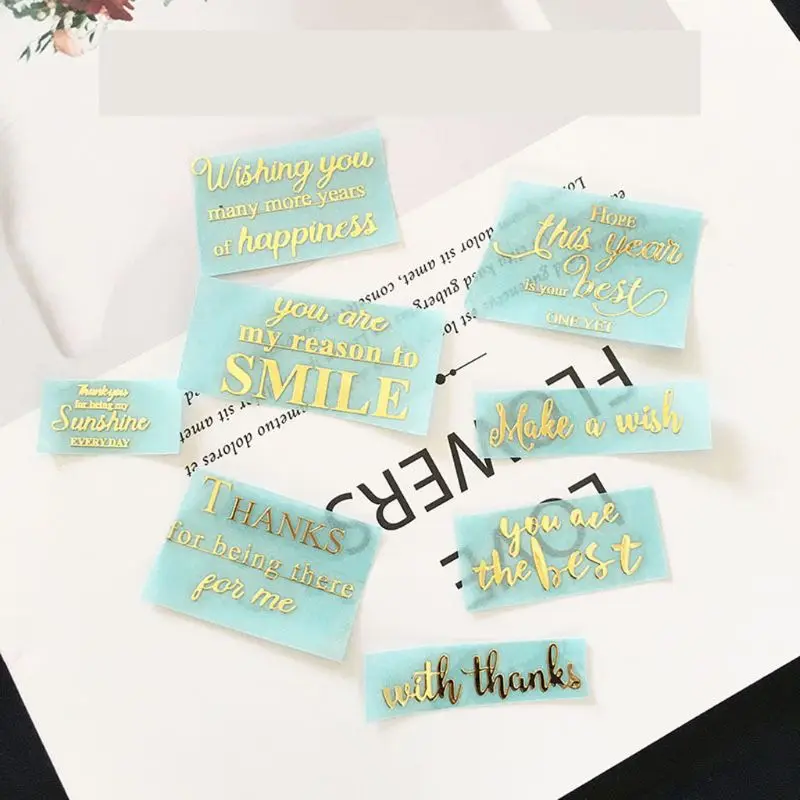 Wishing you
many more years
of happiness
HOPE
this year
is your best
ONE YET
you are
my reason to
SMILE
Thank you
for being my
Sunshine
EVERY DAY
Make a wish
THANKS
for being there
for me
you are
the best
with thanks
dolor sit amet, conse
sit amet.
FLOWERS
LOVE